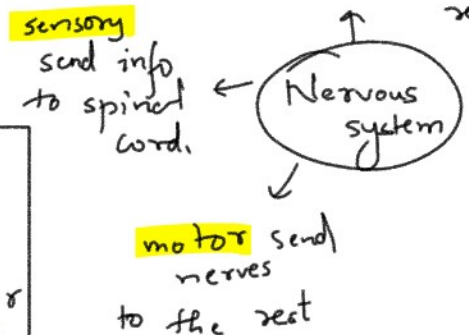 sensory
send info
to spinal
cord.
Nervous
system
motor send
nerves
to the rest